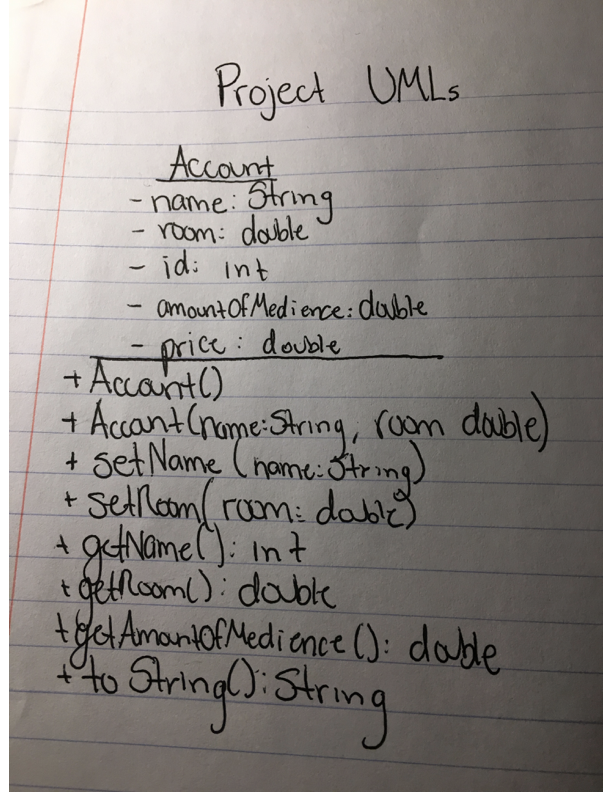 Project UMLs
Account
- name: String
- room: double
- id: int
- amountOfMedience: double
- price: double
+ Account()
+ Account(name:String, room double)
+ setName (name:String)
+ setRoom(room: double)
+ getName(): int
+ getRoom(): double
+ getAmountOfMedience(): double
+ to String(): String